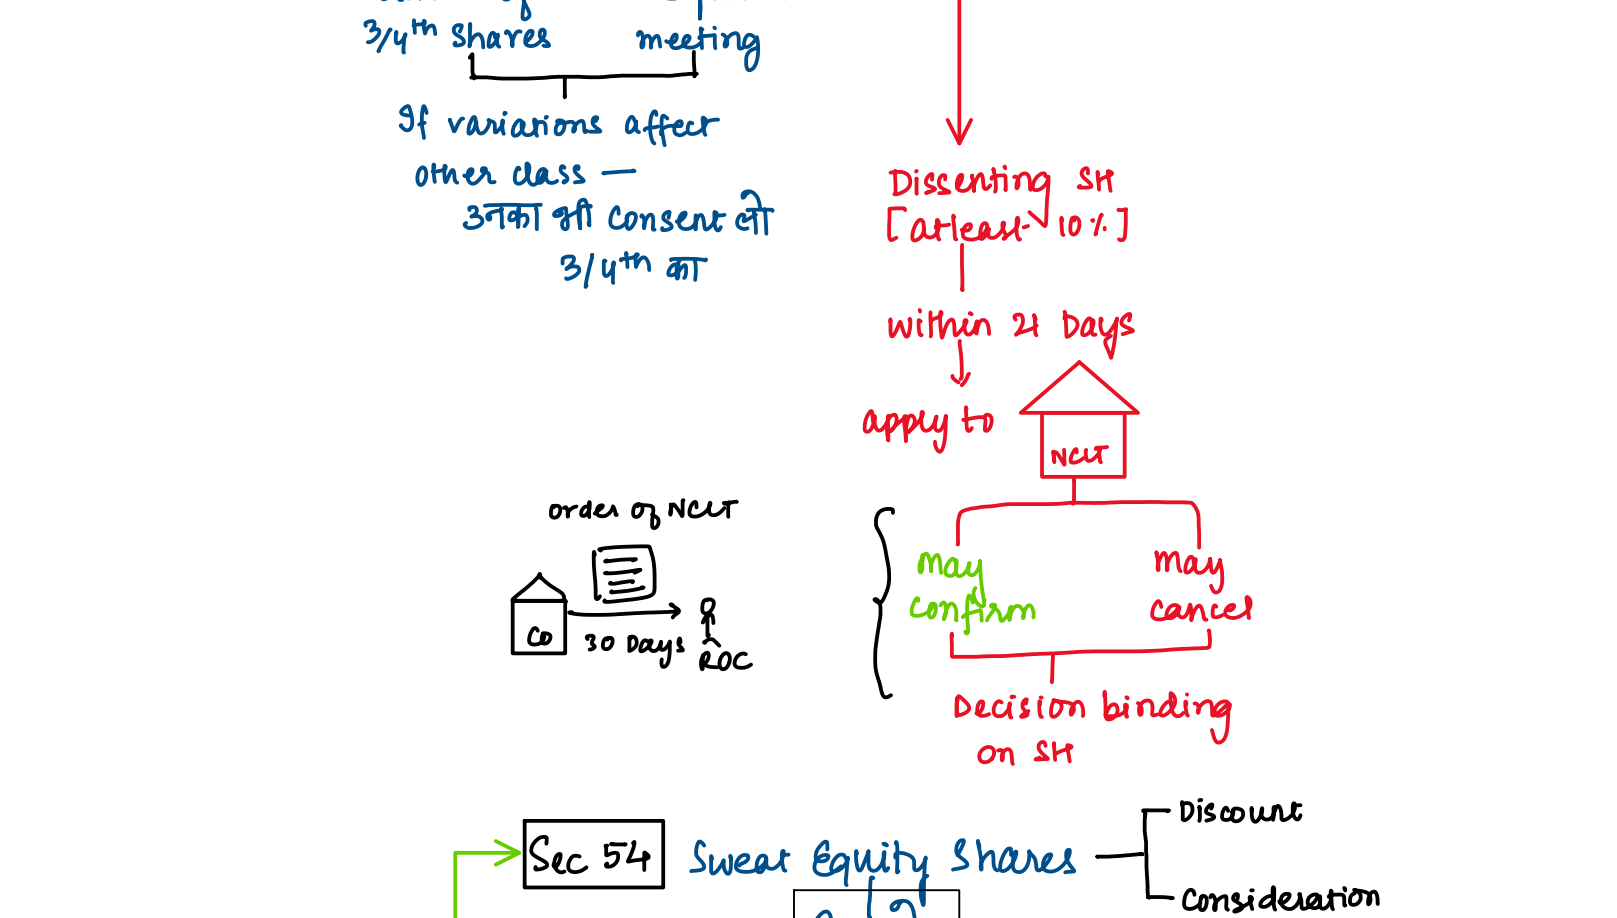 3/4th Shares
meeting
If variations affect
other class —
उनका भी Consent लो
3/4th का
Dissenting SH
[atleast 10%]
within 21 Days
apply to
NCLT
may
confirm
may
cancel
Decision binding
on SH
order of NCLT
CO
30 Days
ROC
Sec 54
Sweat Equity Shares
Discount
Consideration